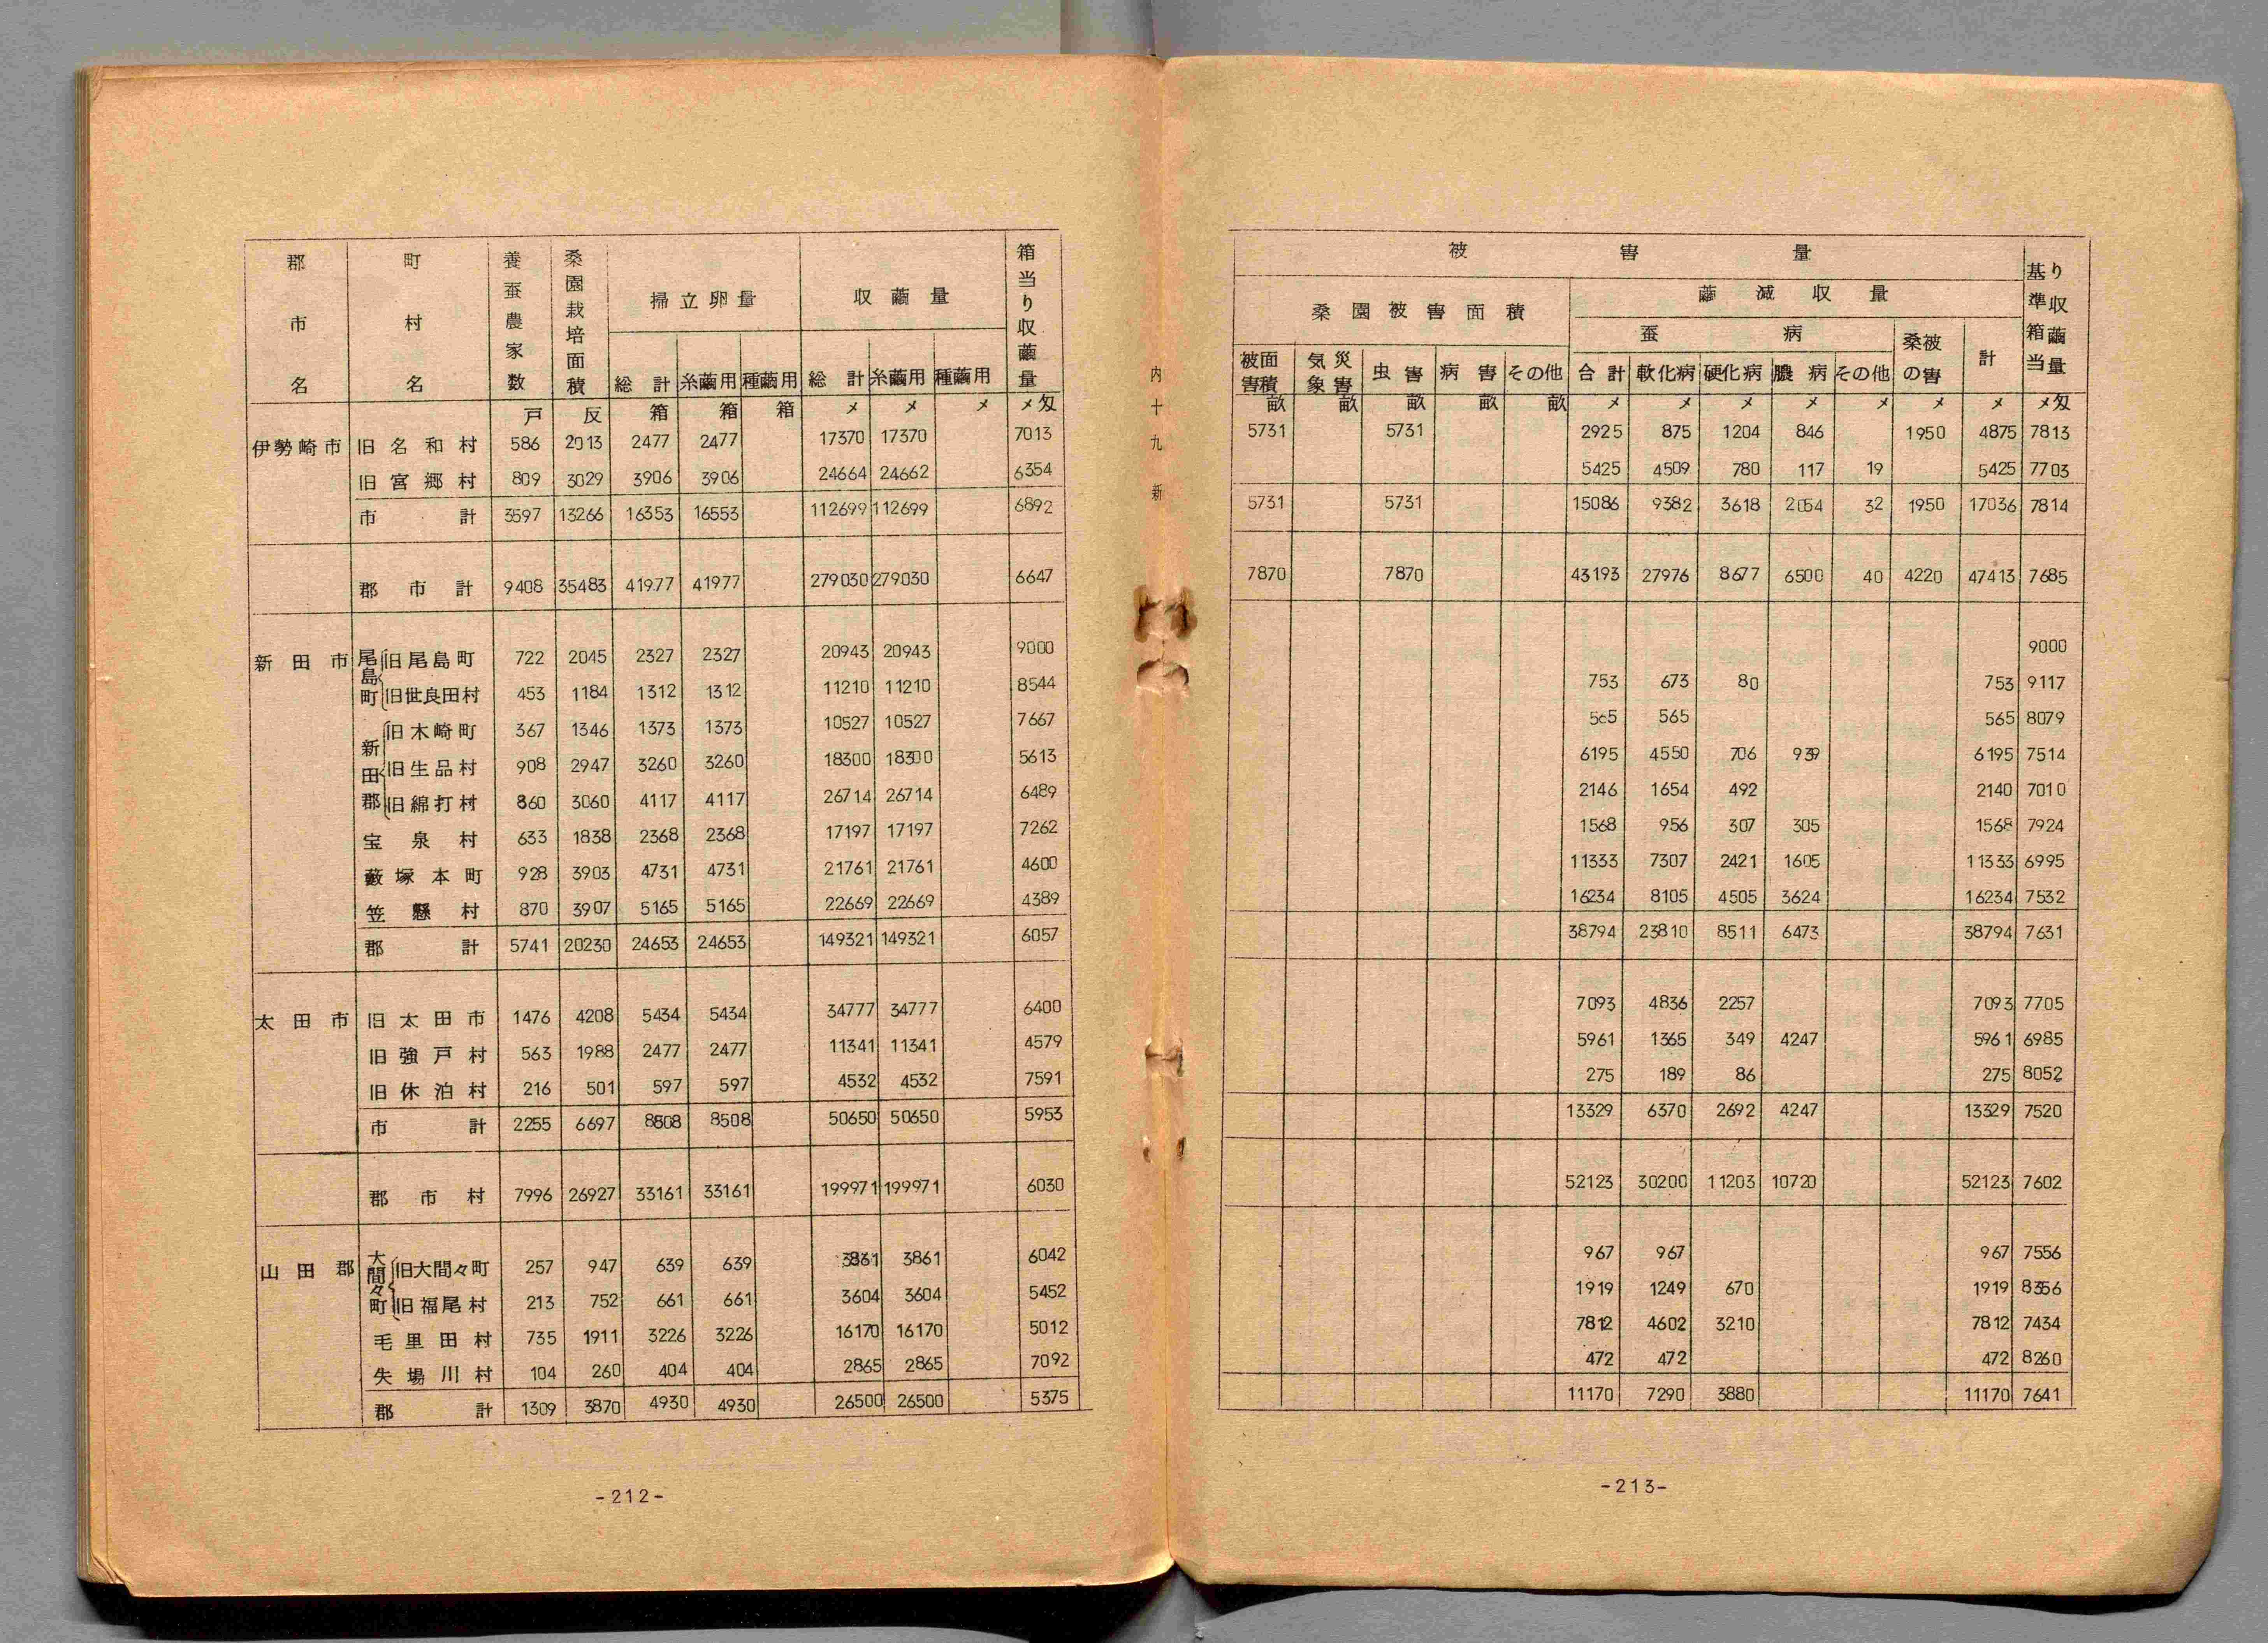 郡市名 町村名 養蚕農家数 桑園栽培面積 掃立卵量 収繭量 箱当り収繭量
総計 糸繭用 種繭用 総計 糸繭用 種繭用
戸 反 箱 箱 箱 メ メ メ メ匁
伊勢崎市 旧名和村 586 2013 2477 2477 17370 17370 7013
旧宮郷村 809 3029 3906 3906 24664 24662 6354
市計 3597 13266 16353 16553 112699 112699 6892
郡市計 9408 35483 41977 41977 279030 279030 6647
新田市 尾島町 旧尾島町 722 2045 2327 2327 20943 20943 9000
旧世良田村 453 1184 1312 1312 11210 11210 8544
新田郡 旧木崎町 367 1346 1373 1373 10527 10527 7667
旧生品村 908 2947 3260 3260 18300 18300 5613
旧綿打村 860 3060 4117 4117 26714 26714 6489
宝泉村 633 1838 2368 2368 17197 17197 7262
藪塚本町 928 3903 4731 4731 21761 21761 4600
笠懸村 870 3907 5165 5165 22669 22669 4389
郡計 5741 20230 24653 24653 149321 149321 6057
太田市 旧太田市 1476 4208 5434 5434 34777 34777 6400
旧強戸村 563 1988 2477 2477 11341 11341 4579
旧休泊村 216 501 597 597 4532 4532 7591
市計 2255 6697 8508 8508 50650 50650 5953
郡市村 7996 26927 33161 33161 199971 199971 6030
山田郡 大間々町 旧大間々町 257 947 639 639 3861 3861 6042
旧福尾村 213 752 661 661 3604 3604 5452
毛里田村 735 1911 3226 3226 16170 16170 5012
失場川村 104 260 404 404 2865 2865 7092
郡計 1309 3870 4930 4930 26500 26500 5375
-212-
内十九 新
被害量 基準箱当り収繭量
桑園被害面積 繭減収量
蚕病 桑被の害 計
被面害積 気象災害 虫害 病害 その他 合計 軟化病 硬化病 膿病 その他
畝 畝 畝 畝 畝 メ メ メ メ メ メ メ メ匁
5731 5731 2925 875 1204 846 1950 4875 7813
5425 4509 780 117 19 5425 7703
5731 5731 15086 9382 3618 2054 32 1950 17036 7814
7870 7870 43193 27976 8677 6500 40 4220 47413 7685
9000
753 673 80 753 9117
565 565 565 8079
6195 4550 706 939 6195 7514
2146 1654 492 2140 7010
1568 956 307 305 1568 7924
11333 7307 2421 1605 11333 6995
16234 8105 4505 3624 16234 7532
38794 23810 8511 6473 38794 7631
7093 4836 2257 7093 7705
5961 1365 349 4247 5961 6985
275 189 86 275 8052
13329 6370 2692 4247 13329 7520
52123 30200 11203 10720 52123 7602
967 967 967 7556
1919 1249 670 1919 8356
7812 4602 3210 7812 7434
472 472 472 8260
11170 7290 3880 11170 7641
-213-